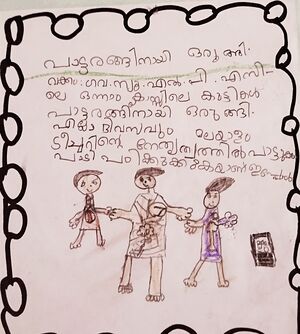 പാട്ടരങ്ങിനായി ഒരുങ്ങി.
വക്കം: ഗവ. സ്വം. എൽ. പി. എസി-
ലെ ഒന്നാം ക്ലാസ്സിലെ കുട്ടികൾ
പാട്ടരങ്ങിനായി ഒരുങ്ങി.
എല്ലാ ദിവസവും മലയാളം
ടീച്ചറിന്റെ നേതൃത്വത്തിൽ പാട്ടുകൾ
പാടി പഠിക്കുകയാണ്